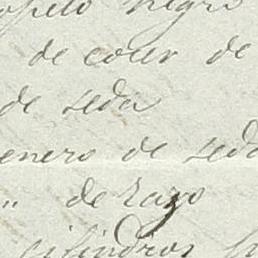 opelo negro
de coler de
de seda
enero de seda
" de Razo
cilindros